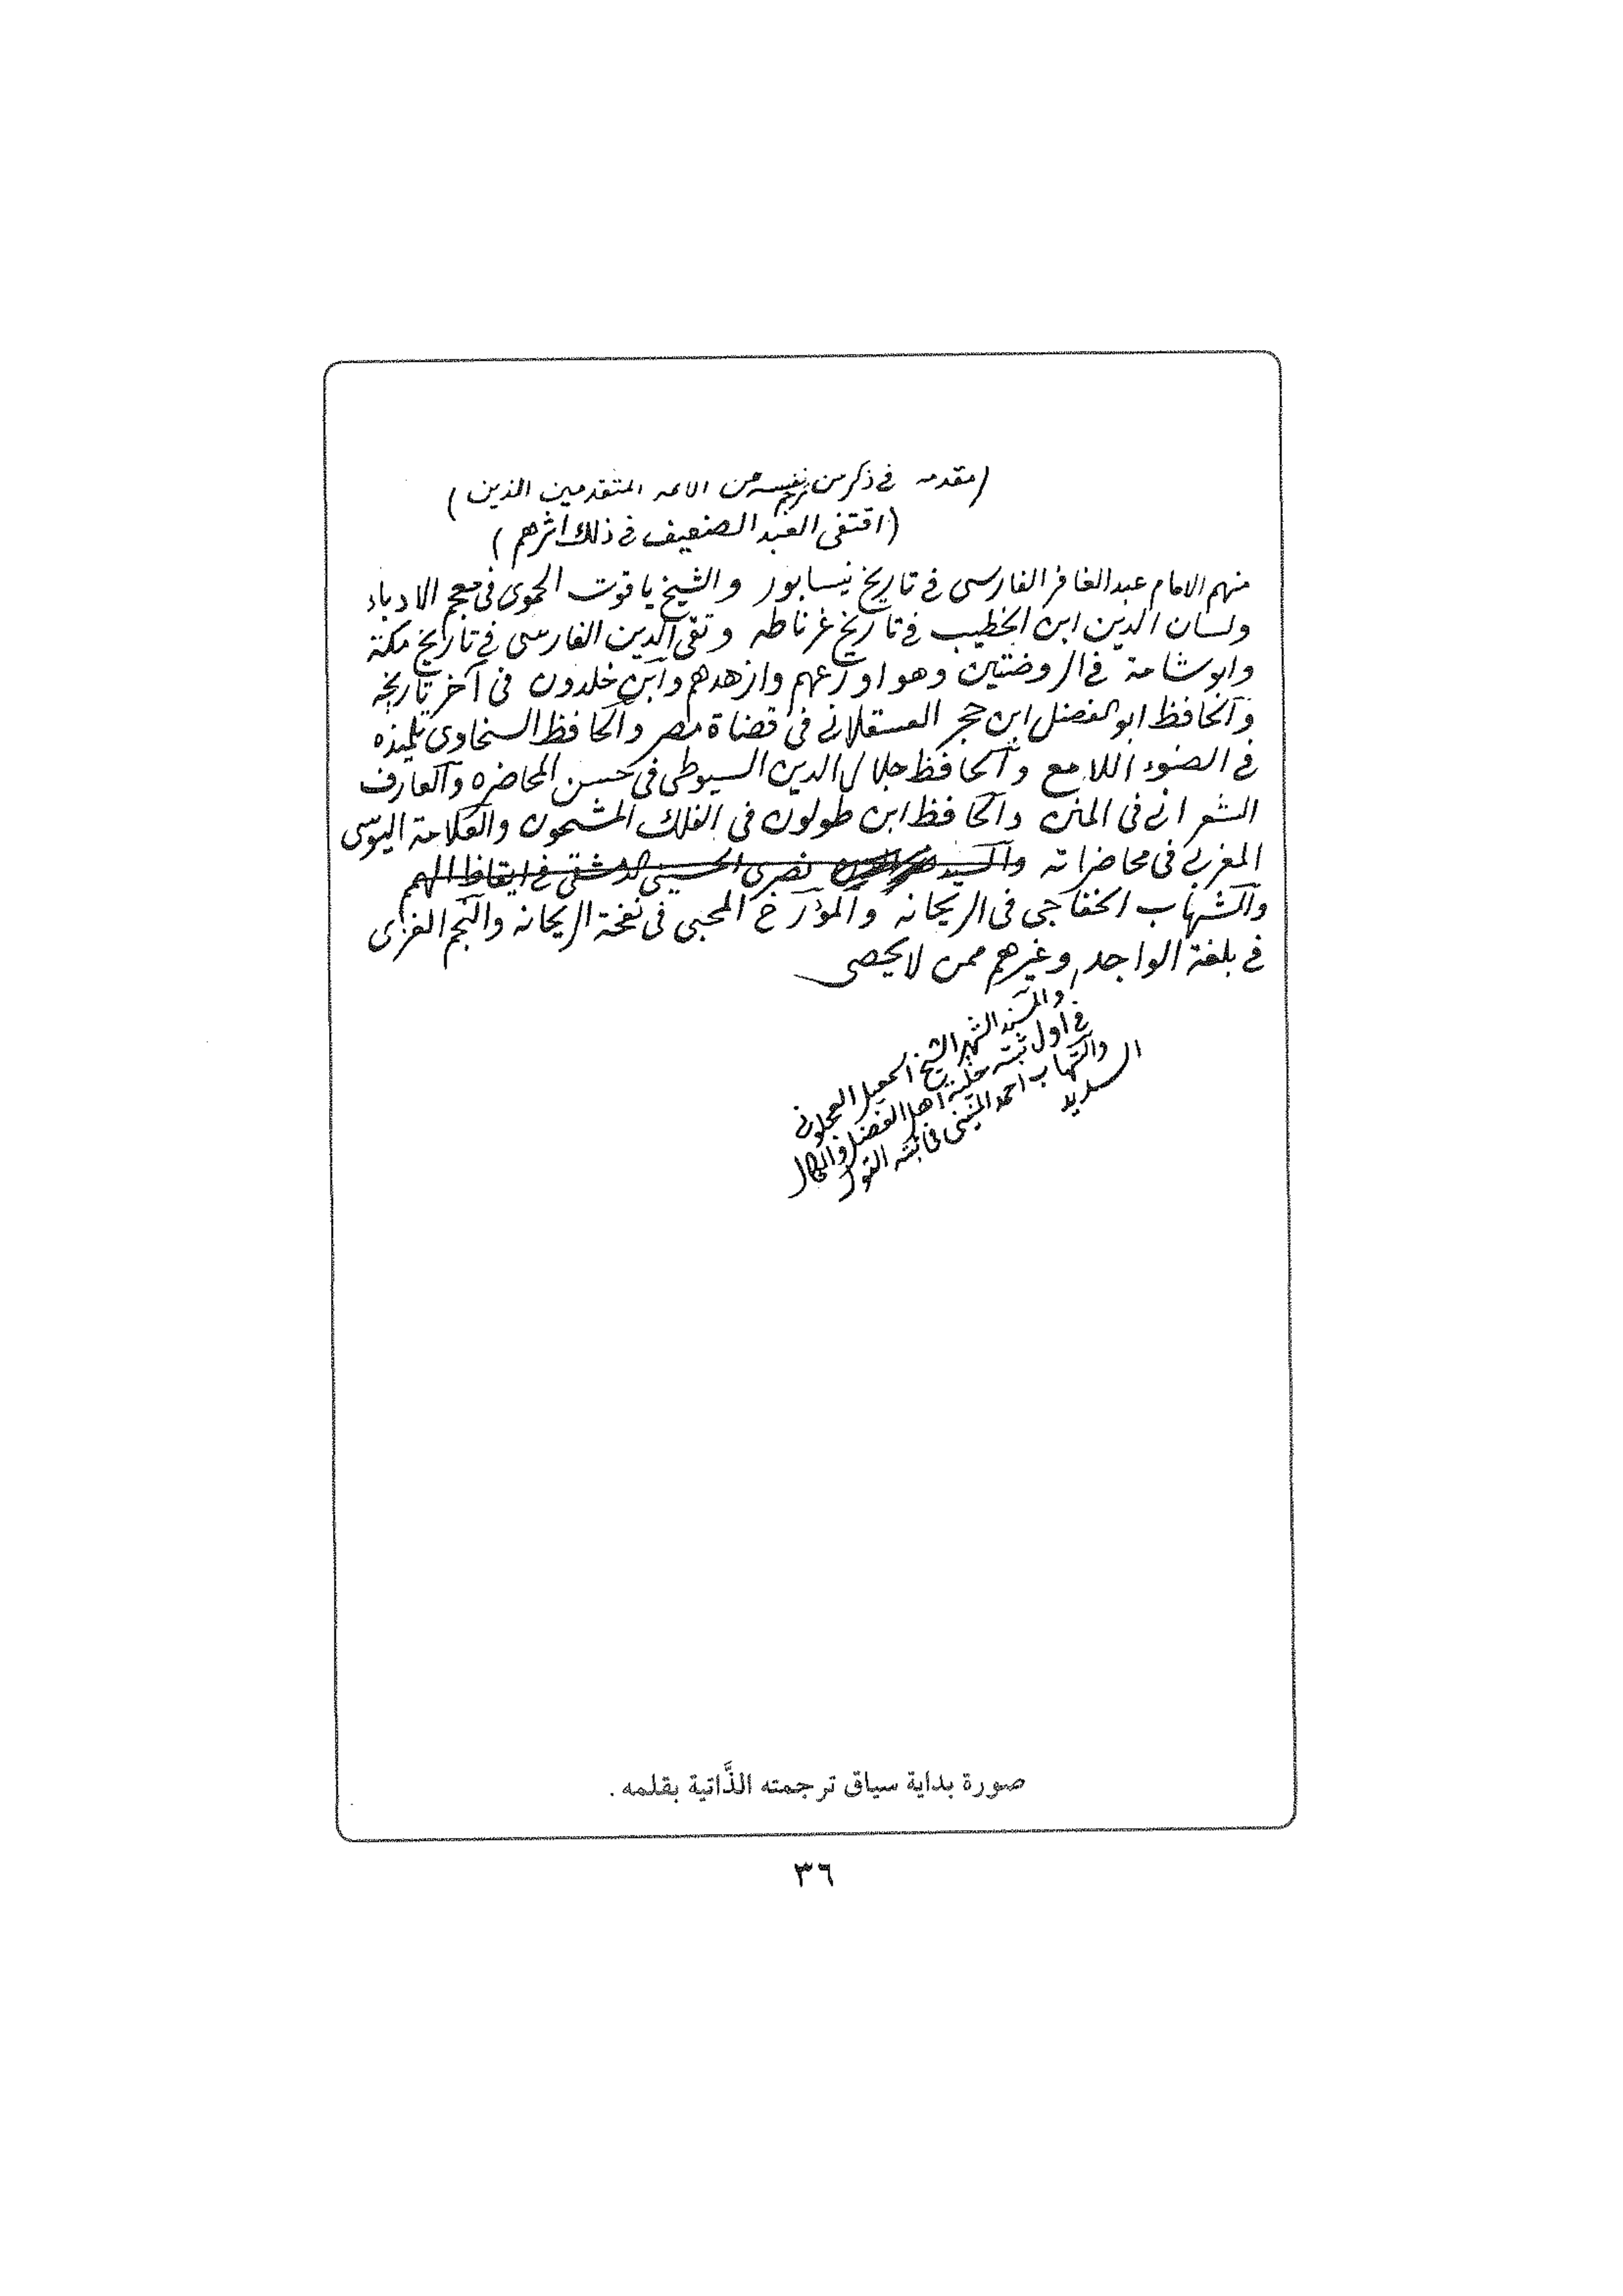 (مقدمه في ذكر من ترجم نفسه من الائمه المتقدمين الذين)
(اقتفى العبد الضعيف في ذلك اثرهم)
منهم الامام عبدالغافر الفارسي في تاريخ نيسابور والشيخ ياقوت الحموى في معجم الادباء
ولسان الدين ابن الخطيب في تاريخ غرناطه وتقى الدين الفارسى في تاريخ مكة
وابو شامة في الروضتين وهو اورعهم وازهدهم وابن خلدون في آخر تاريخه
والحافظ ابو الفضل ابن حجر العسقلاني في قضاة مصر والحافظ السخاوى تلميذه
في الضوء اللامع والحافظ جلال الدين السيوطى في حسن المحاضره والعارف
الشعراني في المنن والحافظ ابن طولون في الفلك المشحون والعلامة اليوسى
المغربي في محاضراته والسيد نصرى الحسينى الدمشقى في ايقاظ الهمم
والشهاب الخفاجى في الريحانه والمؤرخ المحبى في نفحة الريحانه والنجم الغزى
في بلغة الواجد وغيرهم ممن لا يحصى
والمسند الشهير الشيخ اسمعيل العجلوني
في اول ثبته حلية اهل الفضل والكمال
والشهاب احمد المنينى في ثبته القول
السديد
صورة بداية سياق ترجمته الذَّاتية بقلمه .
٣٦